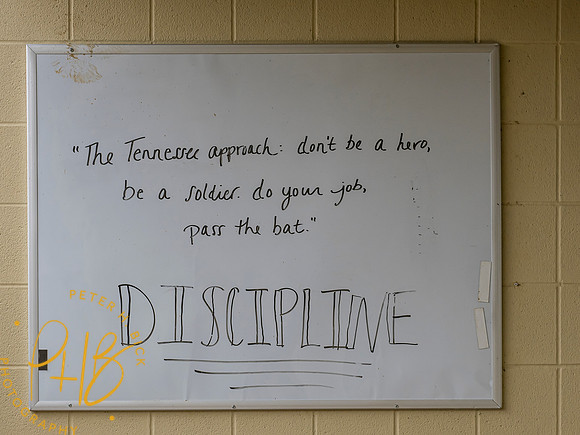 "The Tennessee approach: don't be a hero,
be a soldier. do your job,
pass the bat."
DISCIPLINE
PETER H BICK
PHB
PHOTOGRAPHY